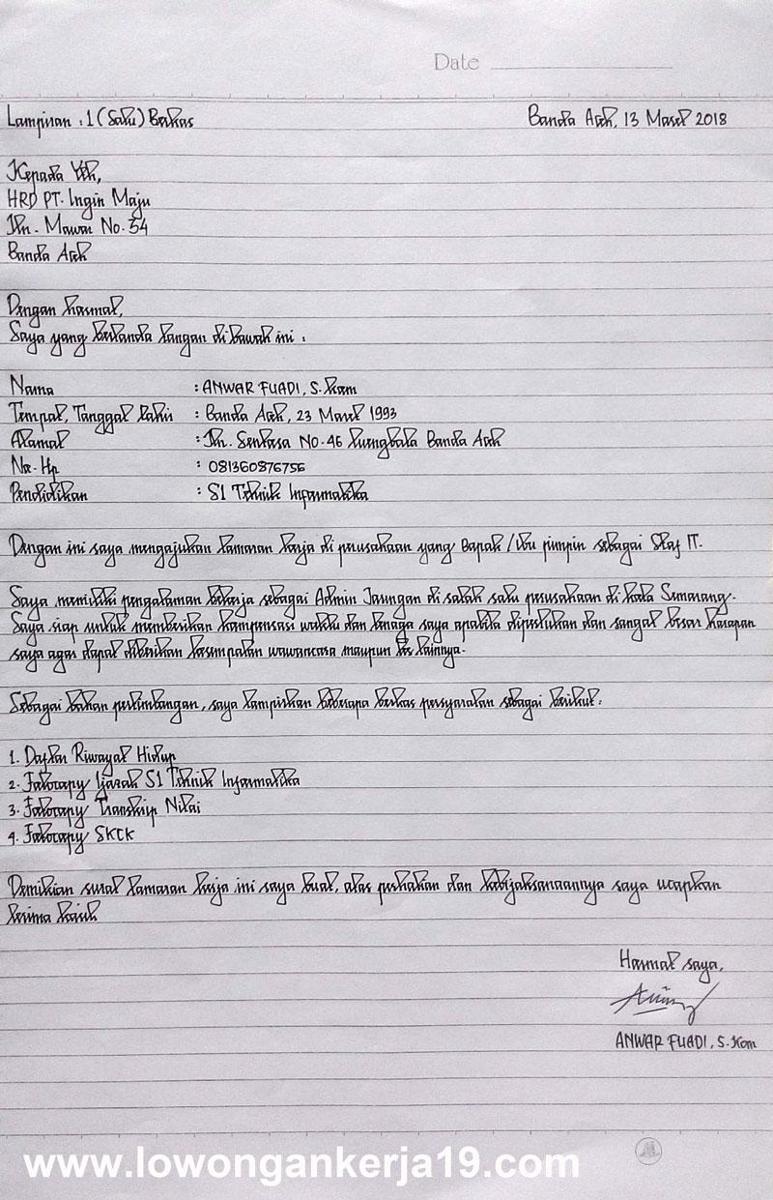 Date
Lampiran : 1 (Satu) Berkas
Banda Aceh, 13 Maret 2018
Kepada Yth,
HRD PT. Ingin Maju
Jln. Mawar No. 54
Banda Aceh
Dengan hormat,
Saya yang bertanda tangan di bawah ini :
Nama : ANWAR FUADI, S.Kom
Tempat, Tanggal Lahir : Banda Aceh, 23 Maret 1993
Alamat : Jln. Sentosa No. 46 Luengbata Banda Aceh
No. Hp : 081360876756
Pendidikan : S1 Teknik Informatika
Dengan ini saya mengajukan lamaran kerja di perusahaan yang Bapak / Ibu pimpin sebagai Staf IT.
Saya memiliki pengalaman bekerja sebagai Admin Jaringan di salah satu perusahaan di kota Semarang.
Saya siap untuk memberikan kompensasi waktu dan tenaga saya apabila diperlukan dan sangat besar harapan
saya agar dapat diberikan kesempatan wawancara maupun tes lainnya.
Sebagai bahan pertimbangan, saya lampirkan beberapa berkas persyaratan sebagai berikut :
1. Daftar Riwayat Hidup
2. Fotocopy Ijazah S1 Teknik Informatika
3. Fotocopy Transkip Nilai
4. Fotocopy SKCK
Demikian surat lamaran kerja ini saya buat, atas perhatian dan kebijaksanaannya saya ucapkan
terima kasih
Hormat saya,
ANWAR FUADI, S.Kom
www.lowongankerja19.com